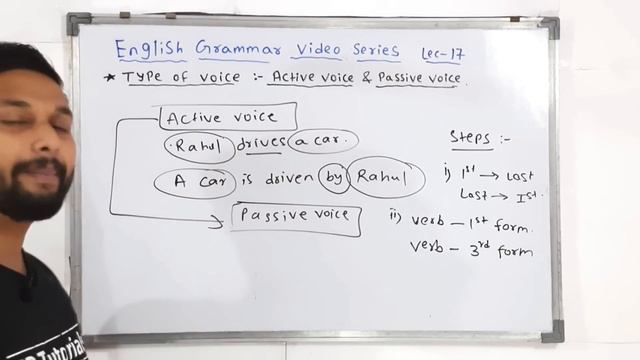 English Grammar Video Series Lec-17
* Type of voice :- Active voice & Passive voice.
Active voice
Rahul drives a car.
A car is driven by Rahul
Passive voice
Steps :-
i) 1st → Last
Last → Ist.
ii) verb - 1st form.
verb - 3rd form
Tutorial